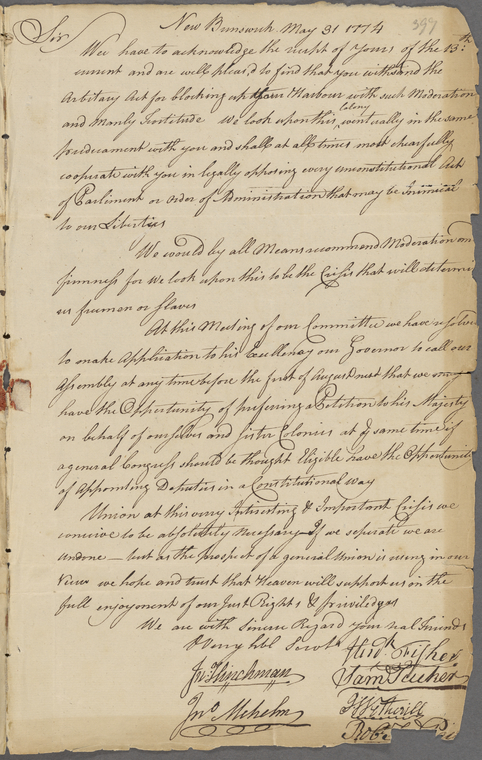 399
New Brunswick May 31 1774
Sir
We have to acknowledge the receipt of yours of the 13th
current and are well pleas'd to find that you withstand the
Arbitary Act for blocking up your Harbour with such Moderation
and Manly Fortitude We look upon this Colony virtually in the same
predicament with you and shall at all times most chearfully
cooperate with you in legally opposing every unconstitutional Act
of Parliment or order of Administration that may be Inimical
to our Liberties
We would by all Means recommend Moderation
firmness for we look upon this to be the Crisis that will determin
us freemen or slaves
At this Meeting of our Committee we have resolve
to make Application to his Excellency our Governor to call our
Assembly at any time before the first of August next that we may
have the Opportunity of prefering a Petition to his Majesty
on behalf of ourselves and sister Colonies at ye same time if
a general Congress should be thought Eligible have the Opportunit
of Appointing Deputies in a Constitutional way
Union at this very Intresting & Important Crisis we
conceive to be absolutely necessary - If we seperate we are
undone - but as the prospect of a general Union is rising in our
View we hope and trust that Heaven will support us in the
full enjoyment of our Just Rights & priviledges
We are with Sincere Regard your real Friends
& Very hbl Servts
Hend. Fisher
Jno. Hinchman
Sam Tucker
Jno. Mehelm
Robt